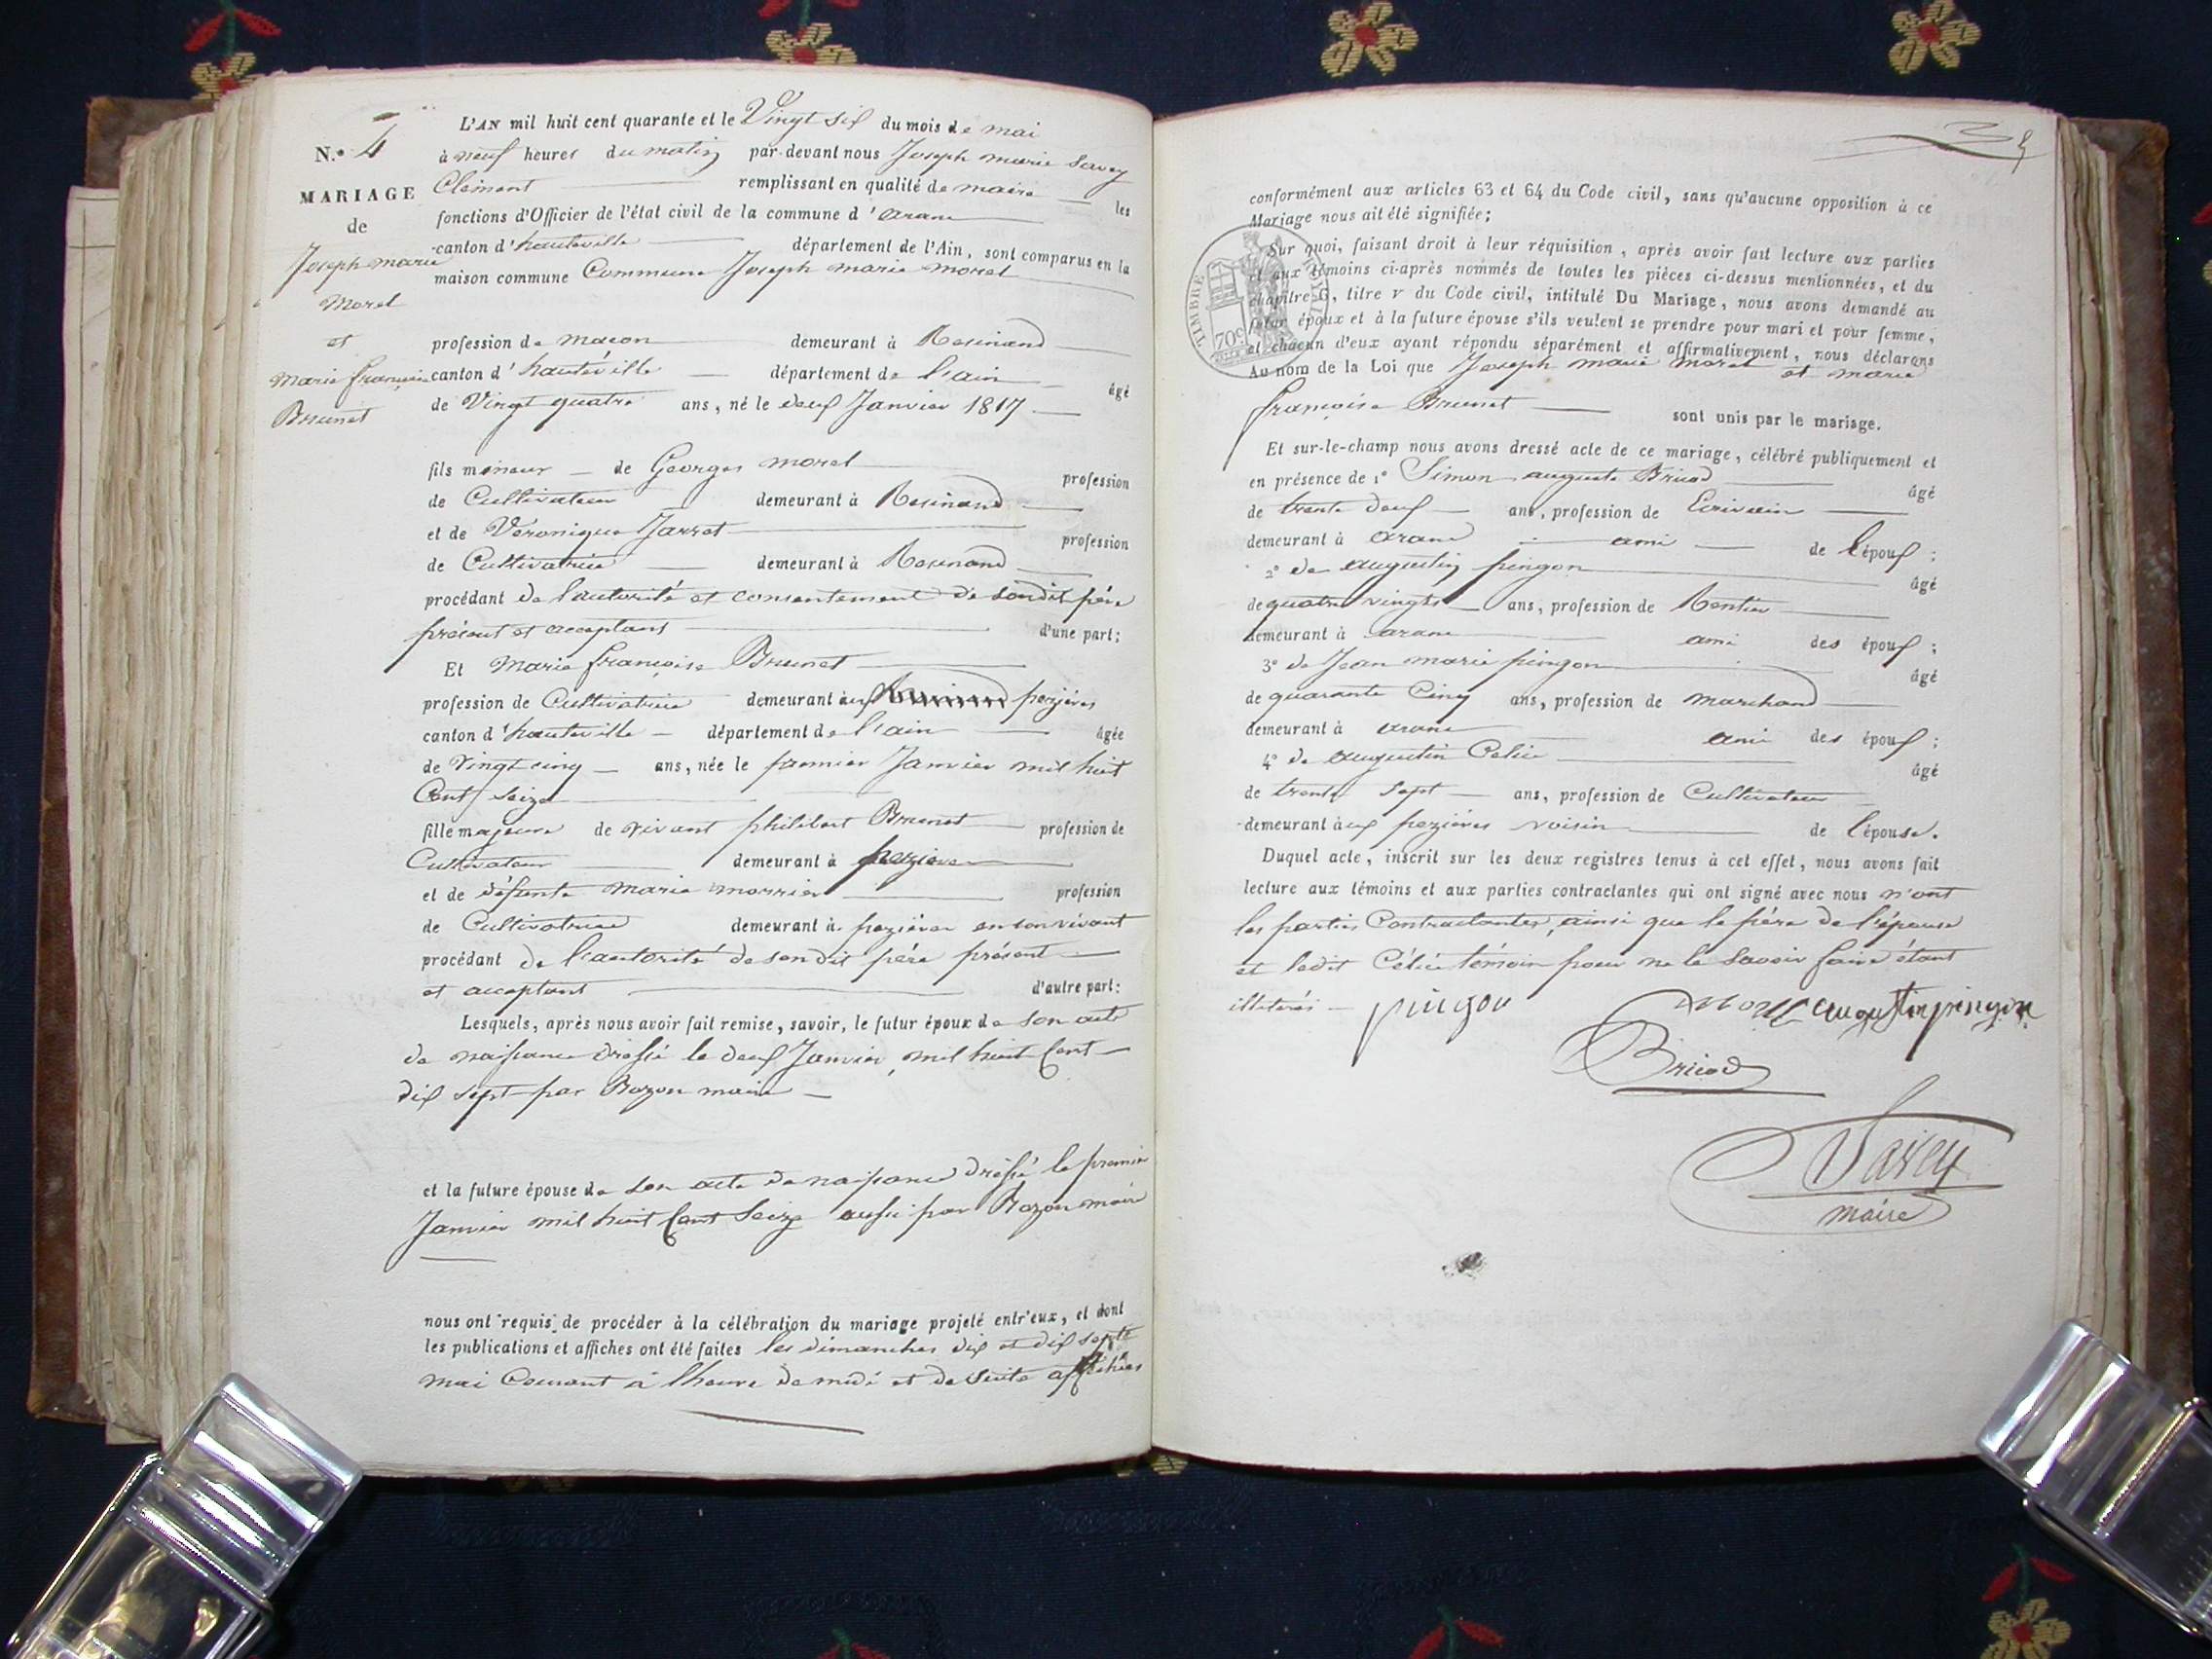 N.° 4
MARIAGE
de
Joseph marie
Morel
et
Marie françoise
Brunet
L'AN mil huit cent quarante et le Vingt six du mois de mai
à neuf heures du matin par-devant nous Joseph marie Savey
Clément remplissant en qualité de maire les
fonctions d'Officier de l'état civil de la commune d'aranc
canton d'hauteville département de l'Ain, sont comparus en la
maison commune Commune Joseph marie morel
profession de macon demeurant à Resinand
canton d'hauteville département de l'ain âgé
de Vingt quatre ans, né le deux Janvier 1817
fils mineur de Georges morel profession
de Cultivateur demeurant à Resinand
et de Véronique Jarret profession
de Cultivatrice demeurant à Resinand
procédant de l'autorité et consentement de son dit père
présent et acceptant d'une part;
Et Marie françoise Brunet
profession de Cultivatrice demeurant aux pezières
canton d'hauteville département de l'ain âgée
de Vingt cinq ans, née le premier Janvier mil huit
Cent seize
fille majeure de vivant philibert Brunet profession de
Cultivateur demeurant à pezières
et de défunte marie morrier profession
de Cultivatrice demeurant à pezières en son vivant
procédant de l'autorité de son dit père présent
et acceptant d'autre part:
Lesquels, après nous avoir fait remise, savoir, le futur époux de son acte
de naissance dressé le deux Janvier mil huit Cent
dix sept par Bozon maire
et la future épouse de son acte de naissance dréssé le premier
Janvier mil huit Cent Seize aussi par Bozon maire
nous ont requis de procéder à la célébration du mariage projeté entr'eux, et dont
les publications et affiches ont été faites les dimanches dix et dix sept
mai Courant à l'heure de midi et de suite affichées
conformément aux articles 63 et 64 du Code civil, sans qu'aucune opposition à ce
Mariage nous ait été signifiée;
Sur quoi, faisant droit à leur réquisition, après avoir fait lecture aux parties
et aux témoins ci-après nommés de toutes les pièces ci-dessus mentionnées, et du
chapitre 6, titre v du Code civil, intitulé Du Mariage, nous avons demandé au
futur époux et à la future épouse s'ils veulent se prendre pour mari et pour femme,
et chacun d'eux ayant répondu séparément et affirmativement, nous déclarons
Au nom de la Loi que Joseph marie morel et marie
françoise Brunet sont unis par le mariage.
TIMBRE ROYAL
70c
Et sur-le-champ nous avons dressé acte de ce mariage, célébré publiquement et
en présence de 1° Simon auguste Bricod âgé
de trente deux ans, profession de Ecrivain
demeurant à aranc ami de l'époux;
2° de augustin pingon âgé
de quatre vingts ans, profession de Rentier
demeurant à aranc ami des époux;
3° de Jean marie pingon âgé
de quarante Cinq ans, profession de marchand
demeurant à aranc ami des époux;
4° de augustin Célice âgé
de trente sept ans, profession de Cultivateur
demeurant aux pezières voisin de l'épouse.
Duquel acte, inscrit sur les deux registres tenus à cet effet, nous avons fait
lecture aux témoins et aux parties contractantes qui ont signé avec nous n'ont
les parties Contractantes, ainsi que le père de l'épouse
et ledit Célice témoin pour ne le savoir faire étant
illetérés
pingon morel augustin pingon
Bricod
Savey
maire